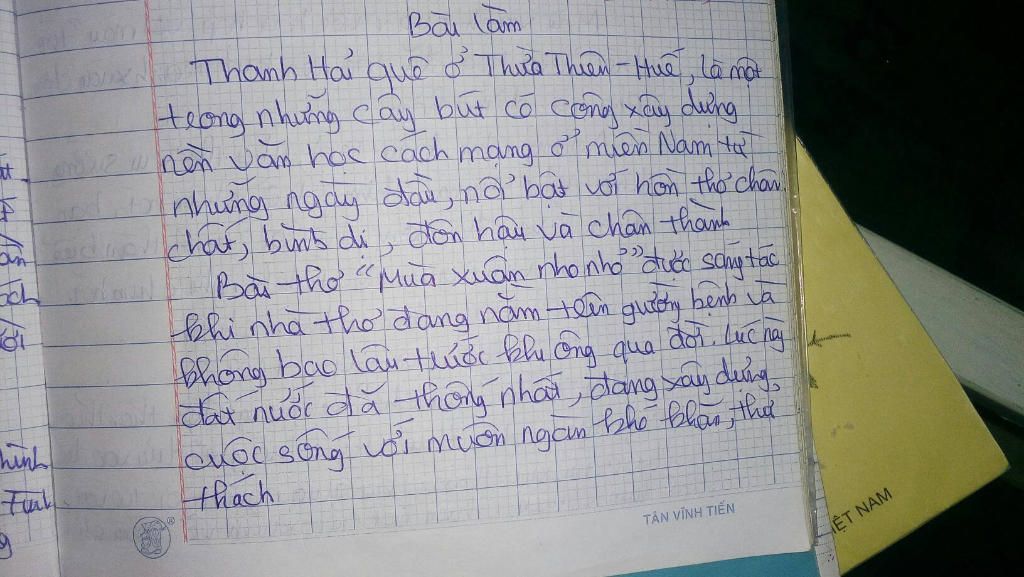 Bài làm
Thanh Hải quê ở Thừa Thiên-Huế, là một
trong những cây bút có công xây dựng
nền văn học cách mạng ở miền Nam từ
những ngày đầu, nổi bật với hồn thơ chân
chất, bình dị, đôn hậu và chân thành
Bài thơ "Mùa xuân nho nhỏ" được sáng tác
khi nhà thơ đang nằm trên giường bệnh và
không bao lâu trước khi ông qua đời. Lúc này
đất nước đã thống nhất, đang xây dựng,
cuộc sống với muôn ngàn khó khăn, thử
thách
TÂN VĨNH TIẾN
IỆT NAM
ách
hình